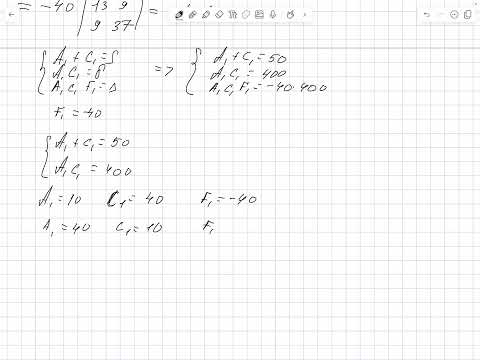 = -40 | 13 9 | =
9 37 |
{ A₁ + C₁ = S
A₁ C₁ = δ
A₁ C₁ F₁ = Δ
=> { A₁ + C₁ = 50
A₁ C₁ = 400
A₁ C₁ F₁ = -40·400
F₁ = -40
{ A₁ + C₁ = 50
A₁ C₁ = 400
A₁ = 10 C₁ = 40 F₁ = -40
A₁ = 40 C₁ = 10 F₁